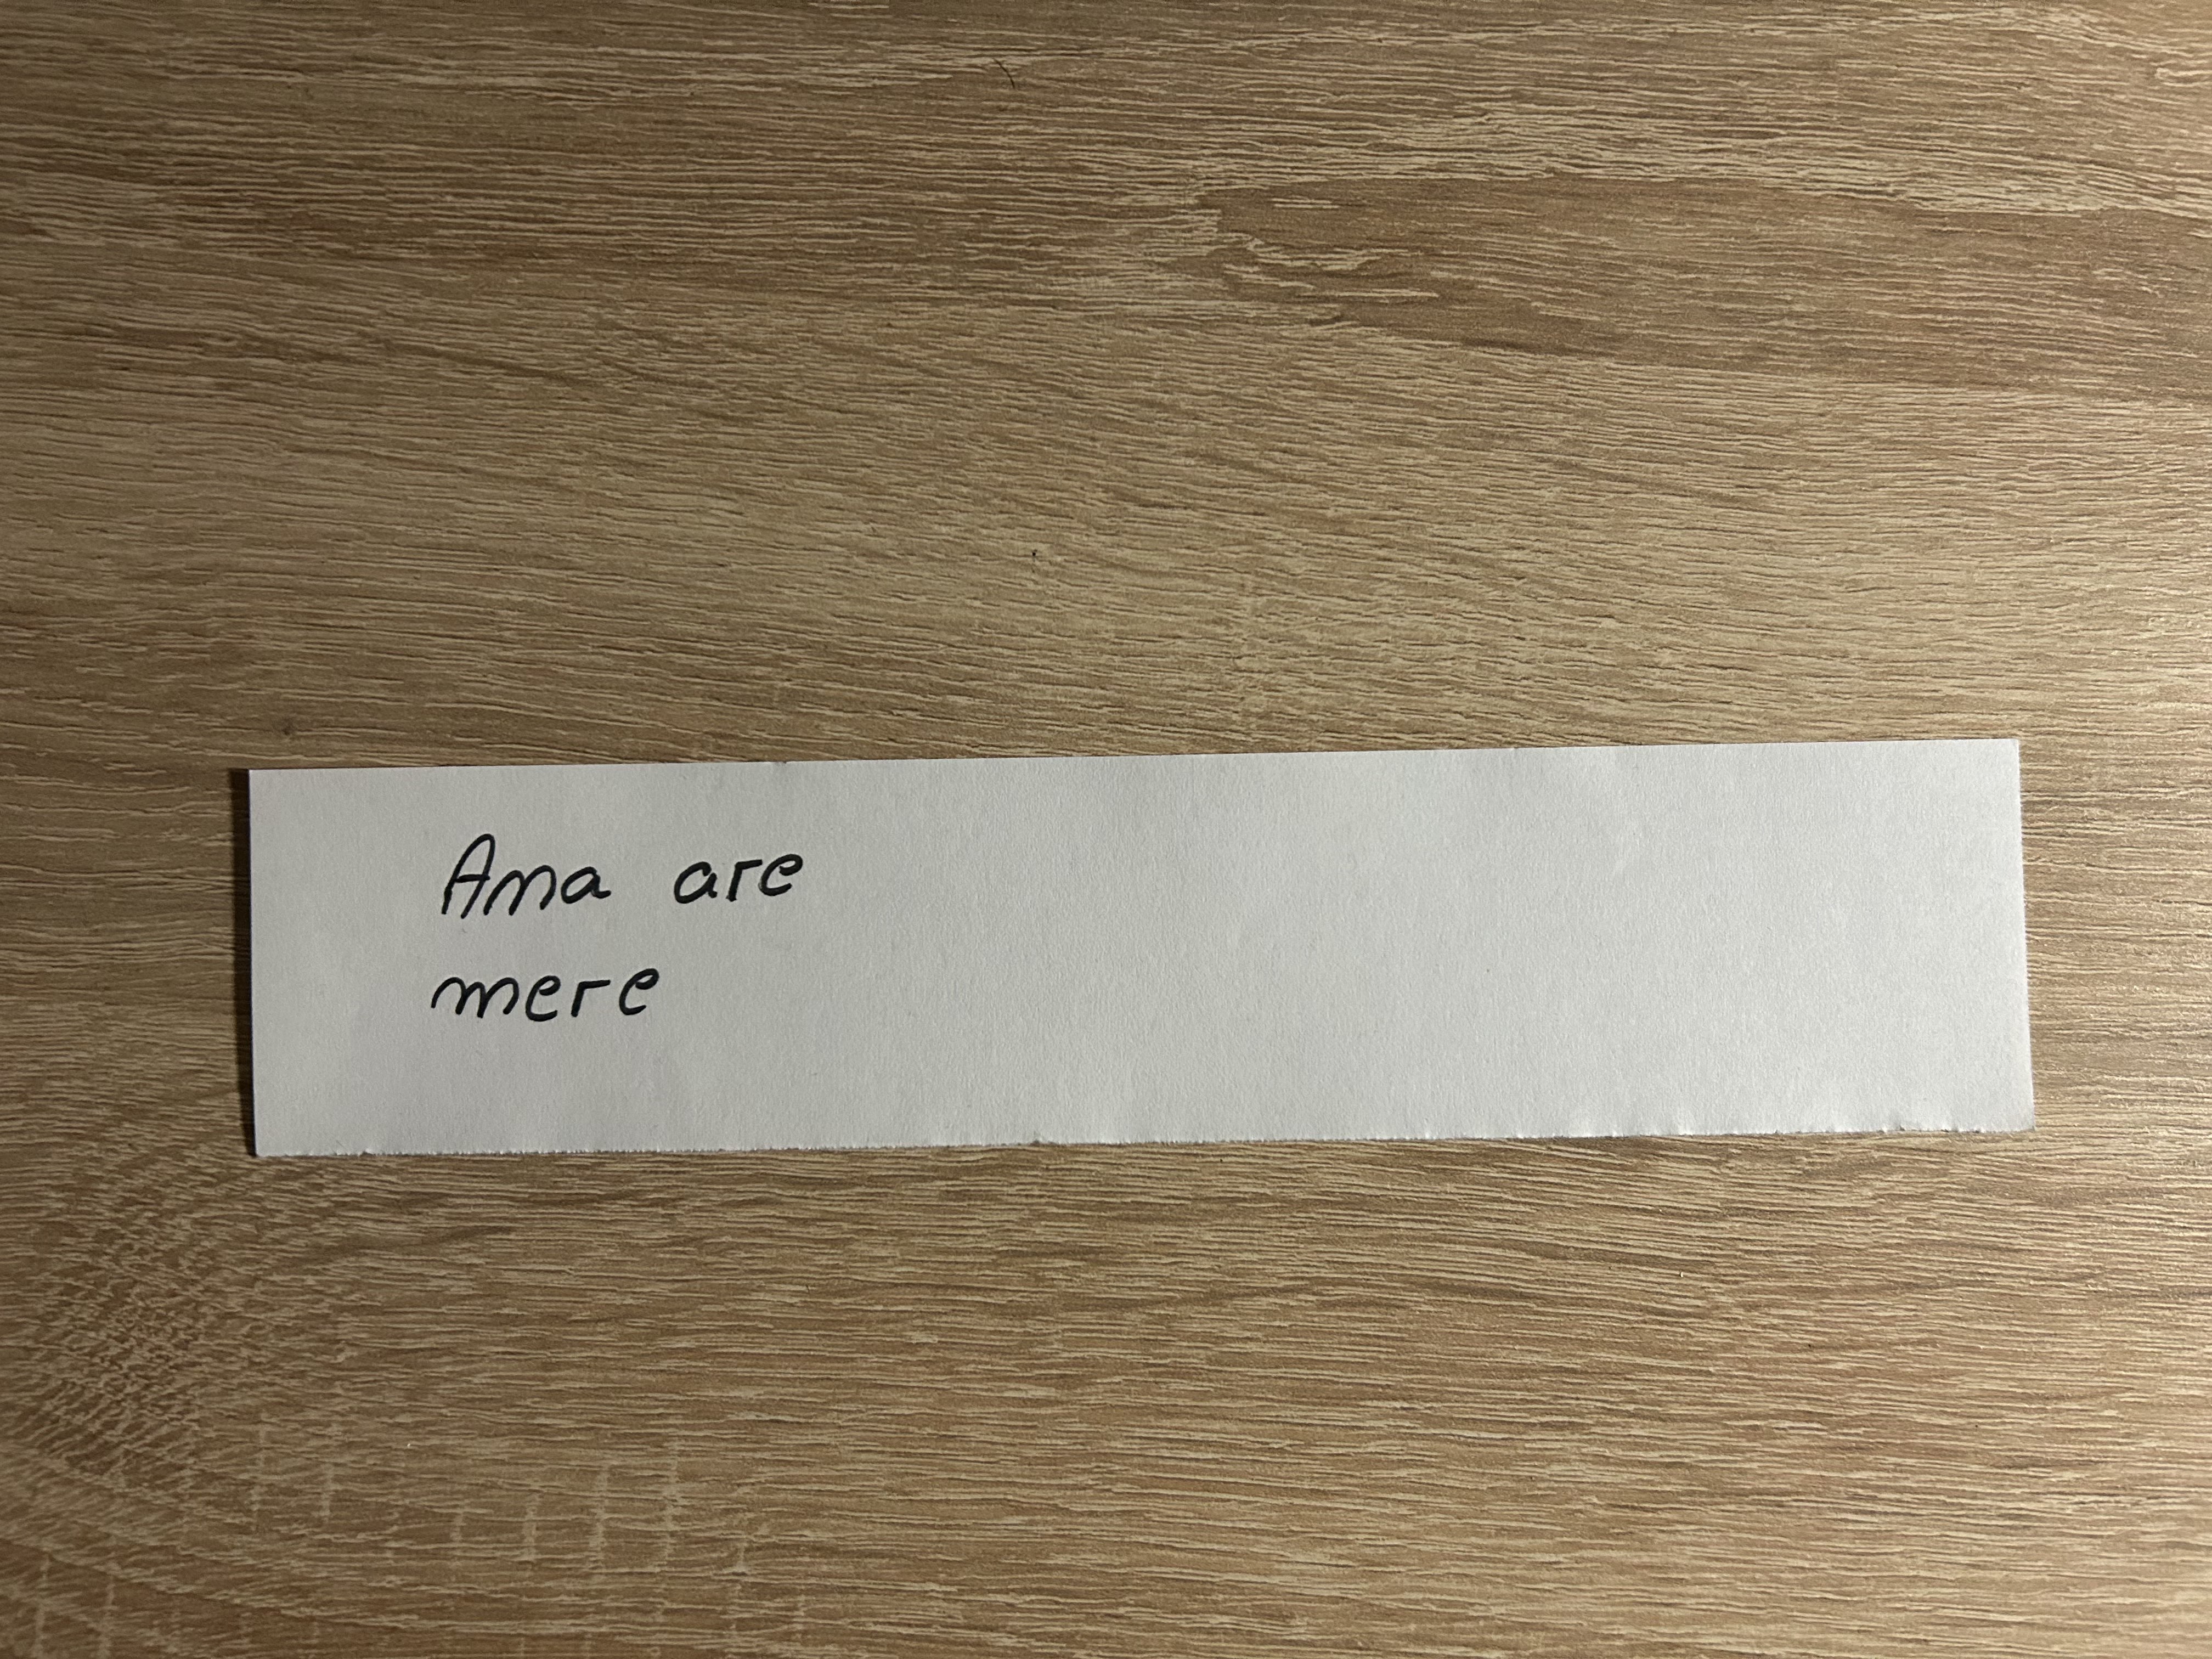 Ana are
mere